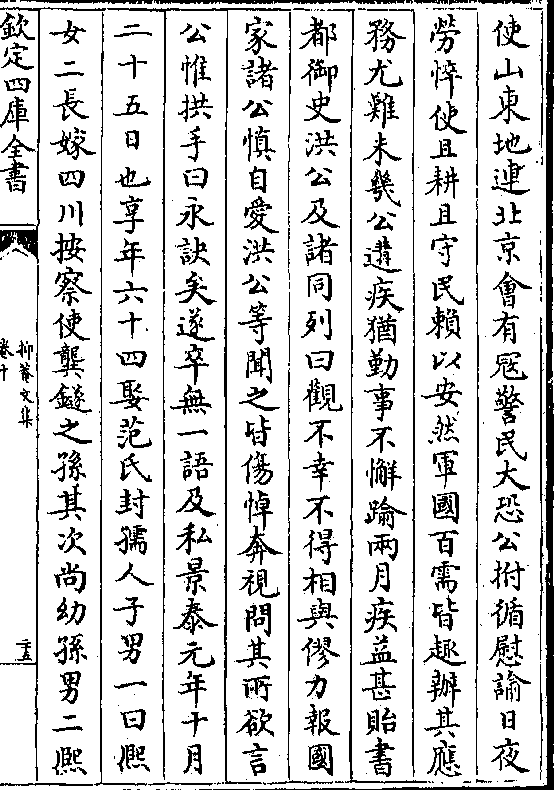 使山東地連北京會有冦警民大恐公拊循慰諭日夜
勞悴使且耕且守民賴以安然軍國百需皆趣辦其應
務尤難未幾公遘疾猶勤事不懈踰兩月疾益甚貽書
都御史洪公及諸同列曰觀不幸不得相與僇力報國
家諸公慎自愛洪公等聞之皆傷悼奔視問其所欲言
公惟拱手曰永訣矣遂卒無一語及私景泰元年十月
二十五日也享年六十四娶范氏封孺人子男一曰熈
女二長嫁四川按察使龔鐩之孫其次尚幼孫男二熈
欽定四庫全書
抑菴文集
卷十
二五